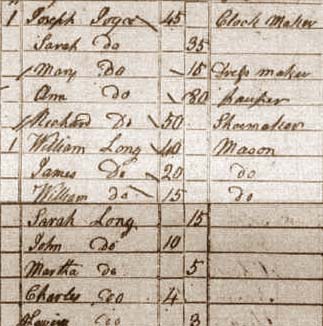 1 Joseph Joyce 45 Clock Maker
Sarah Do 35
Mary Do 15 Dress maker
Ann do 80 pauper
Richard Do 50 Shoemaker
1 William Long 40 Mason
James Do 20 do
William do 15 do
Sarah Long 15
John Do 10
Martha do 5
Charles Do 4
do 3